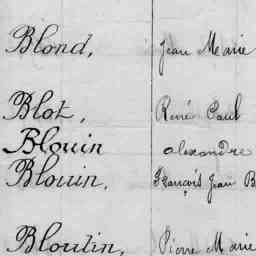 Blond, Jean Marie
Blot, René Paul
Blouin alexandre
Blouin, François Jean B
Bloutin, Pierre Marie